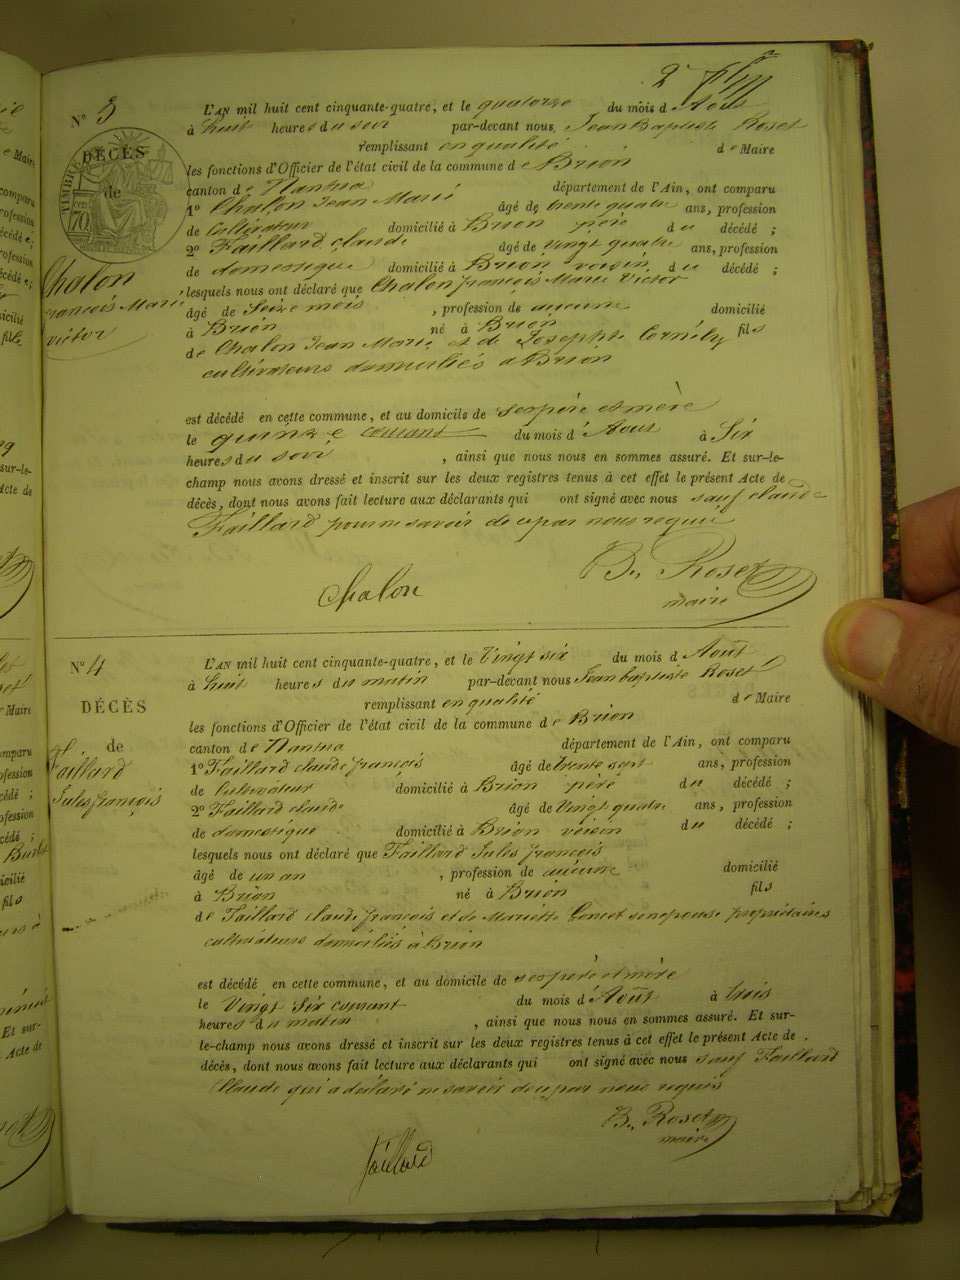 2
N° 3
DÉCÈS
de
TIMBRE
70
Chalon
François Marie
victor
L'AN mil huit cent cinquante-quatre, et le quatorze du mois d'Août
à huit heures du soir par-devant nous, Jean Baptiste Roset
remplissant en qualité de Maire
les fonctions d'Officier de l'état civil de la commune de Brion
canton de Nantua département de l'Ain, ont comparu
1° Chalon Jean Marie âgé de trente quatre ans, profession
de cultivateur domicilié à Brion père du décédé ;
2° Faillard claude âgé de vingt quatre ans, profession
de domestique domicilié à Brion voisin du décédé ;
lesquels nous ont déclaré que Chalon françois Marie Victor
âgé de Seize mois , profession de aucune domicilié
à Brion né à Brion fils
de Chalon Jean Marie et de Josephte Cornély
cultivateurs domiciliés à Brion
est décédé en cette commune, et au domicile de ses père et mère
le quinze courant du mois d'Août à Six
heures du soir , ainsi que nous nous en sommes assuré. Et sur-le-
champ nous avons dressé et inscrit sur les deux registres tenus à cet effet le présent Acte de
décès, dont nous avons fait lecture aux déclarants qui ont signé avec nous sauf claude
Faillard pour ne savoir de ce par nous requis
Chalon
B. Roset
maire
N° 4
DÉCÈS
de
Faillard
Jules françois
L'AN mil huit cent cinquante-quatre, et le Vingt six du mois d'Août
à huit heures du matin par-devant nous Jean baptiste Roset
remplissant en qualité de Maire
les fonctions d'Officier de l'état civil de la commune de Brion
canton de Nantua département de l'Ain, ont comparu
1° Faillard claude françois âgé de trente sept ans, profession
de Cultivateur domicilié à Brion père du décédé ;
2° Faillard claude âgé de Vingt quatre ans, profession
de domestique domicilié à Brion voisin du décédé ;
lesquels nous ont déclaré que Faillard Jules françois
âgé de un an , profession de aucune domicilié
à Brion né à Brion fils
de Faillard claude françois et de Mariette son epouse propriétaires
cultivateurs domiciliés à Brion
est décédé en cette commune, et au domicile de ses père et mère
le Vingt Six courant du mois d'Août à trois
heures du matin , ainsi que nous nous en sommes assuré. Et sur-
le-champ nous avons dressé et inscrit sur les deux registres tenus à cet effet le présent Acte de
décès, dont nous avons fait lecture aux déclarants qui ont signé avec nous sauf Faillard
Claude qui a déclaré ne savoir de ce par nous requis
B. Roset
maire
faillard